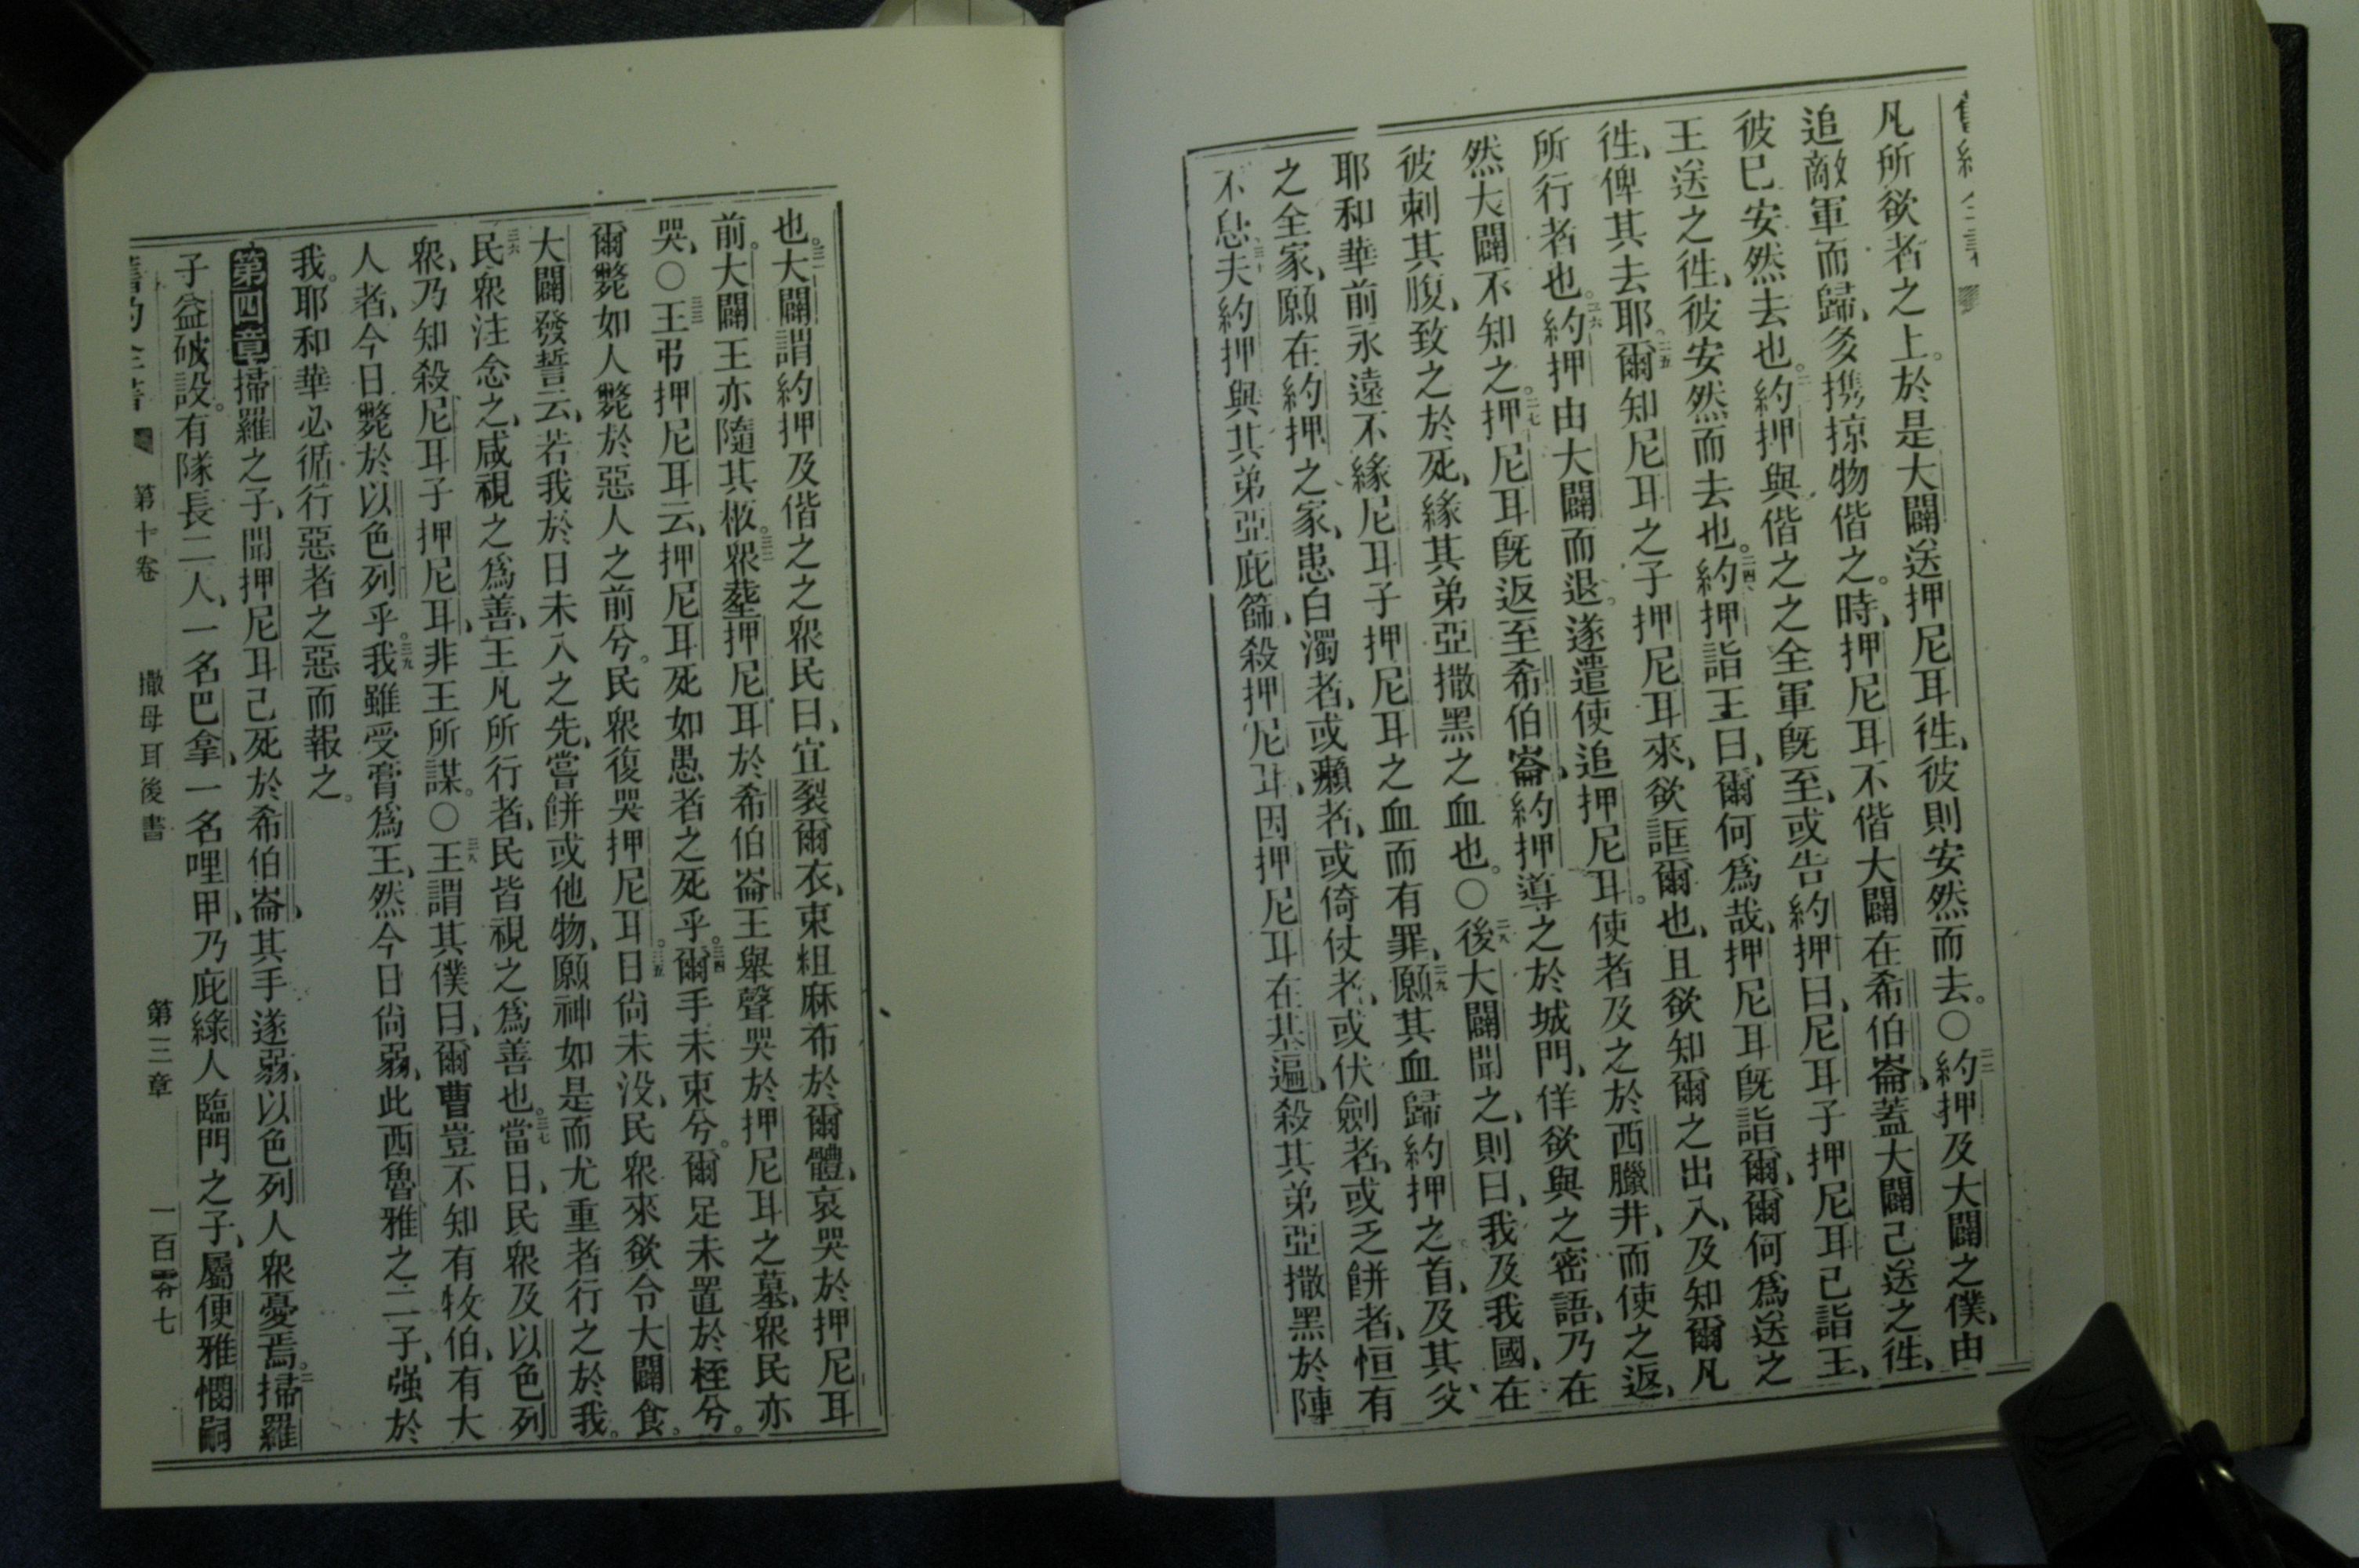 凡所欲者之上。於是大闢送押尼耳徃、彼則安然而去。〇二二約押及大闢之僕、由
追敵軍而歸、多携掠物偕之。時、押尼耳不偕大闢在希伯崙、蓋大闢己送之徃、
彼巳安然去也。約押與偕之之全軍旣至、或告約押曰、尼耳子押尼耳己詣王、
王送之徃、彼安然而去也。二四約押詣王曰、爾何爲哉、押尼耳旣詣爾、爾何爲送之
徃、俾其去耶。二五爾知尼耳之子押尼耳來、欲誆爾也、且欲知爾之出入、及知爾凡
所行者也。二六約押由大闢而退。遂遣使追押尼耳。使者及之於西臘井、而使之返、
然大闢不知之。二七押尼耳旣返至希伯崙、約押導之於城門、佯欲與之密語、乃在
彼刺其腹、致之於死、緣其弟亞撒黑之血也。〇二八後大闢聞之、則曰、我及我國、在
耶和華前永遠不緣尼耳子押尼耳之血而有罪、二九願其血歸約押之首、及其父
之全家、願在約押之家、患白濁者、或癩者、或倚仗者、或伏劍者、或乏餅者、恒有
不息、三十夫約押與其弟亞庇篩、殺押尼耳、因押尼耳在基遍、殺其弟亞撒黑於陣
也。三一大闢謂約押及偕之之衆民曰、宜裂爾衣、束粗麻布於爾體、哀哭於押尼耳
前。大闢王亦隨其柩。三二衆塟押尼耳於希伯崙王舉聲哭於押尼耳之墓、衆民亦
哭、〇三三王弔押尼耳云、押尼耳死如愚者之死乎。三四爾手未束兮。爾足未置於桎兮。
爾斃如人斃於惡人之前兮。民衆復哭押尼耳。三五日尙未没、民衆來欲令大闢食。
大闢發誓云、若我於日未入之先、嘗餅或他物、願神如是而尤重者行之於我。
三六民衆注念之、咸視之爲善、王凡所行者、民皆視之爲善也。三七當日、民衆及以色列
衆、乃知殺尼耳子押尼耳、非王所謀。〇三八王謂其僕曰、爾曹豈不知有牧伯、有大
人者、今日斃於以色列乎。三九我雖受膏爲王、然今日尙弱、此西魯雅之二子、强於
我。耶和華必循行惡者之惡而報之。
第四章掃羅之子、聞押尼耳己死於希伯崙、其手遂弱、以色列人衆憂焉。二掃羅
子益破設。有隊長二人、一名巴拿、一名哩甲、乃庇綠人臨門之子、屬便雅憫嗣
第十卷 撒母耳後書 第三章 一百零七